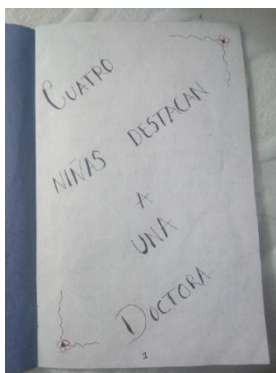 CUATRO
NIÑAS DESTACAN
A
UNA
DOCTORA
1